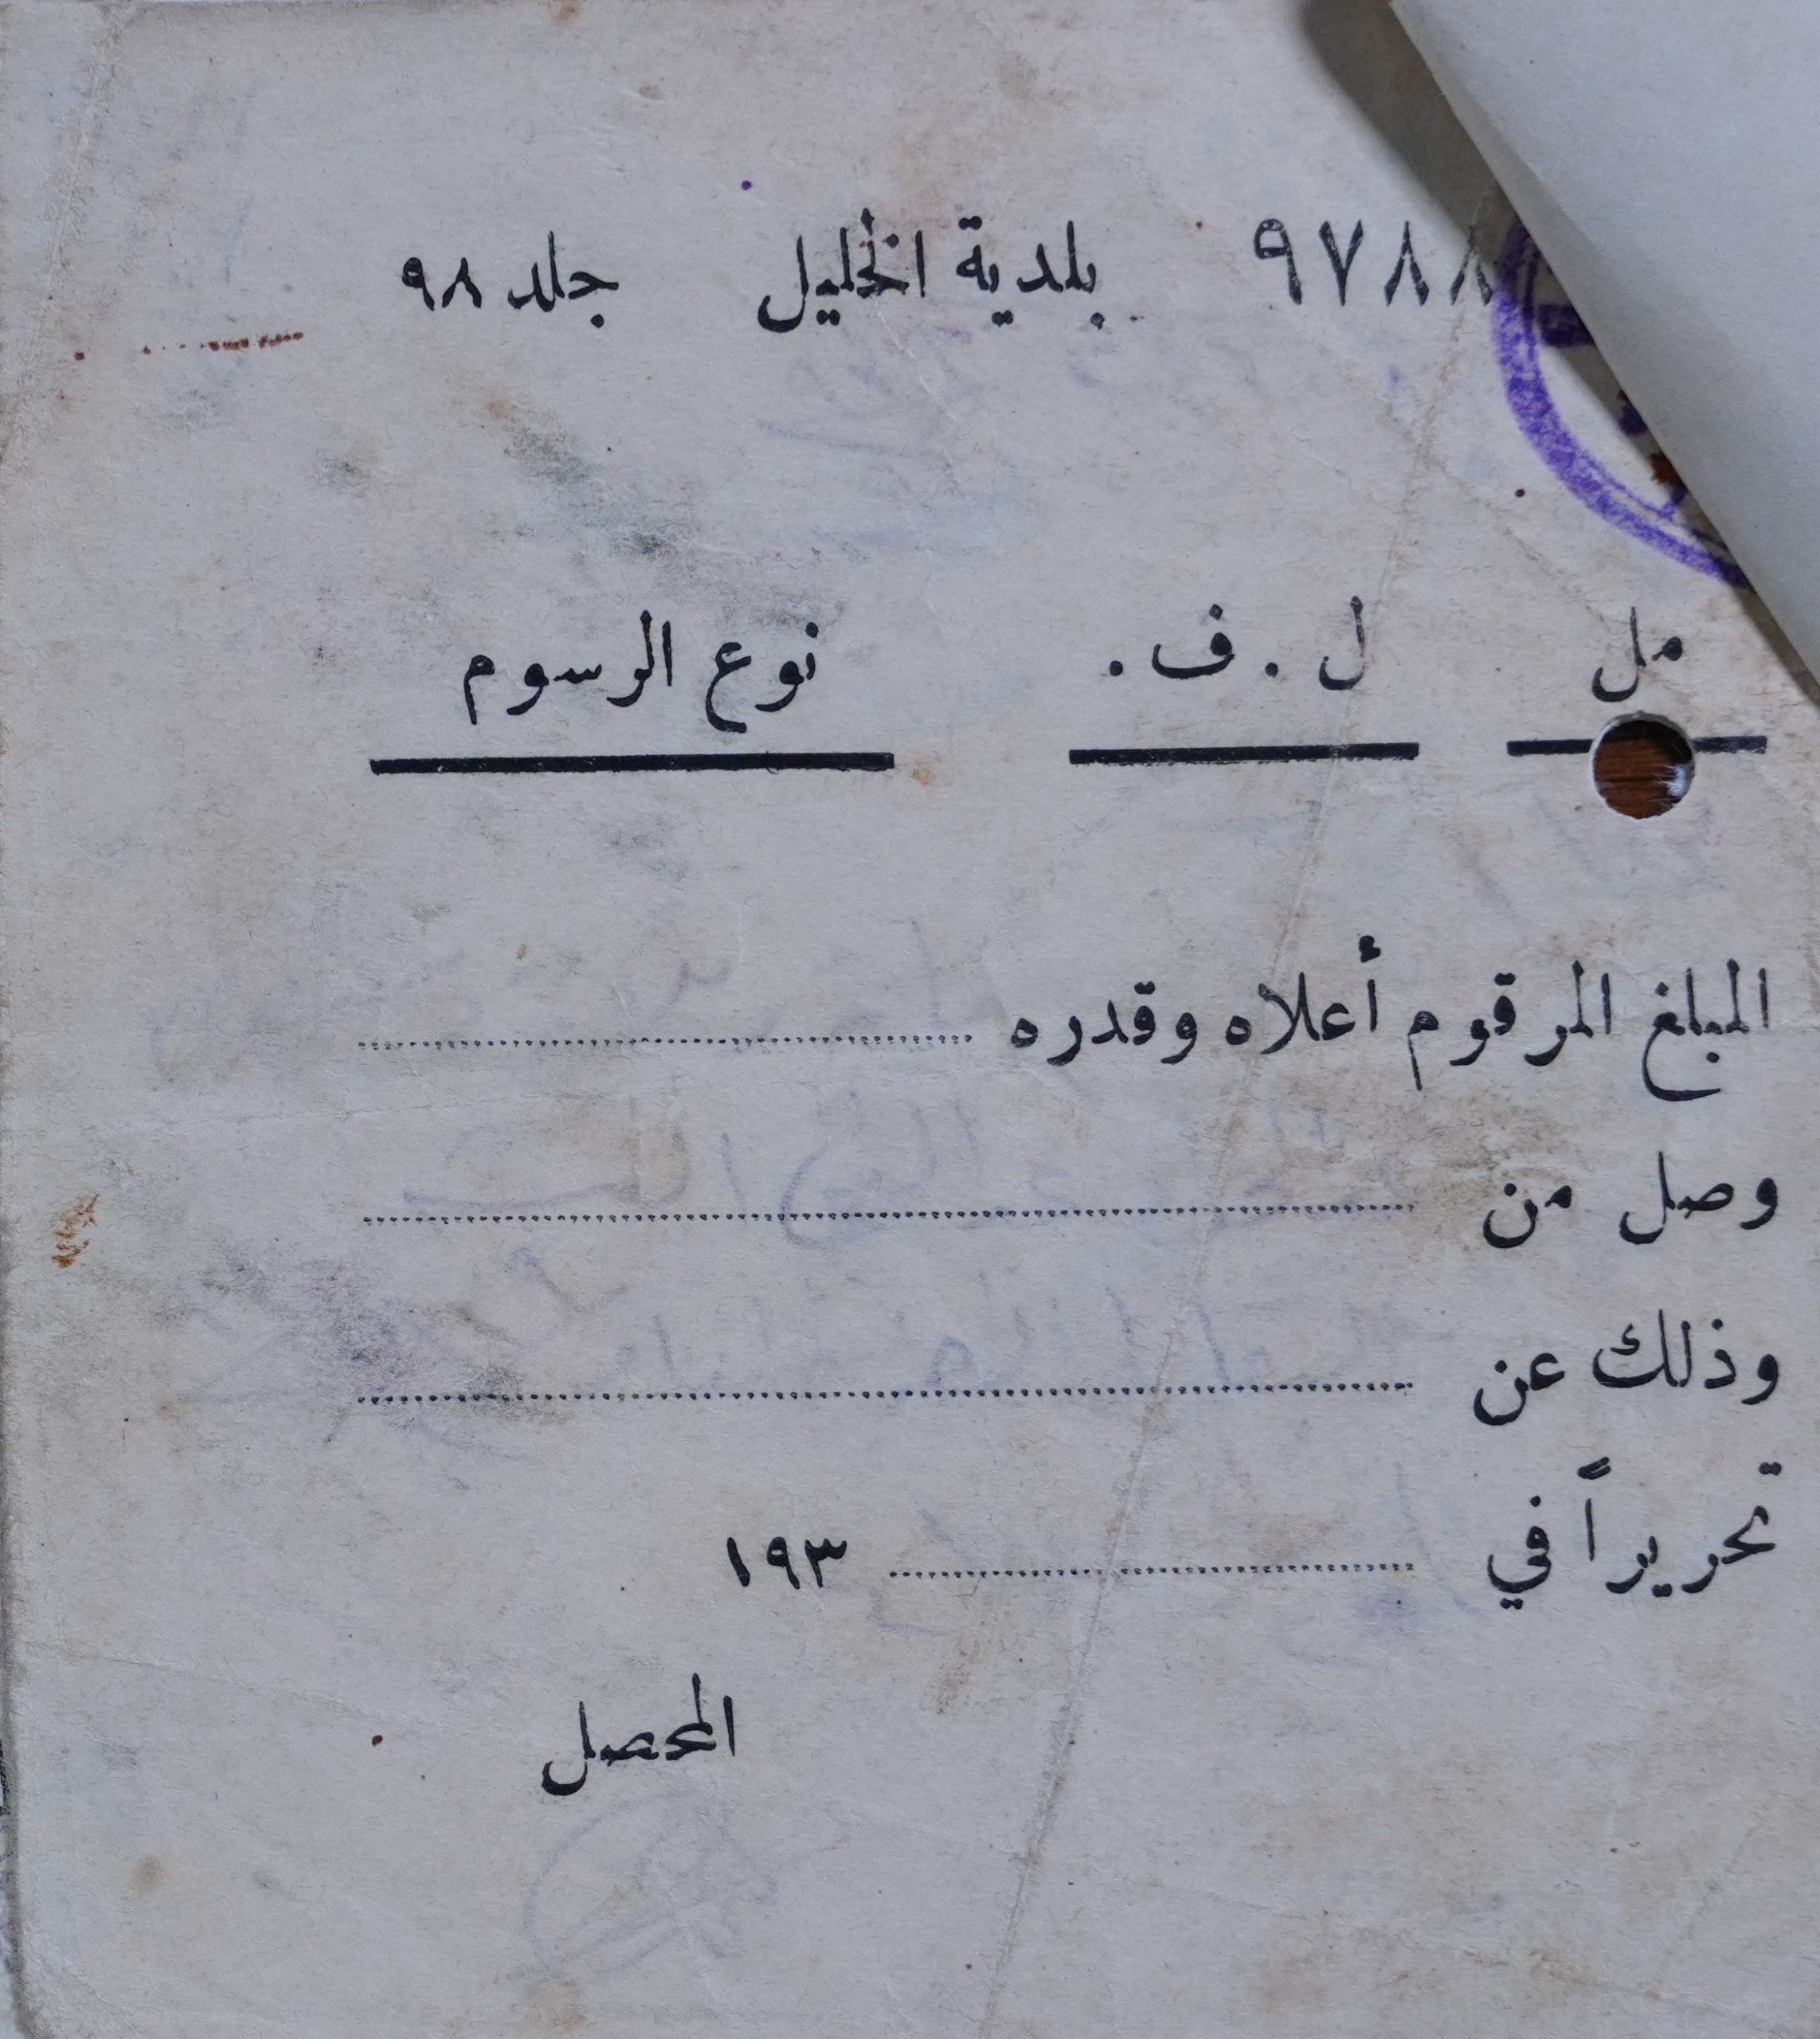 ٩٧٨٨ بلدية الخليل جلد ٩٨
مل ل . ف . نوع الرسوم
المبلغ المرقوم أعلاه وقدره
وصل من
وذلك عن
تحريراً في ١٩٣
المحصل